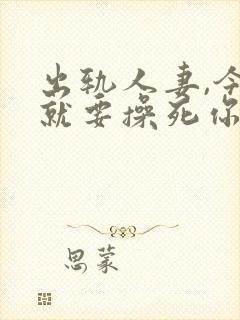 出轨人妻,今
就要操死你
思蒙